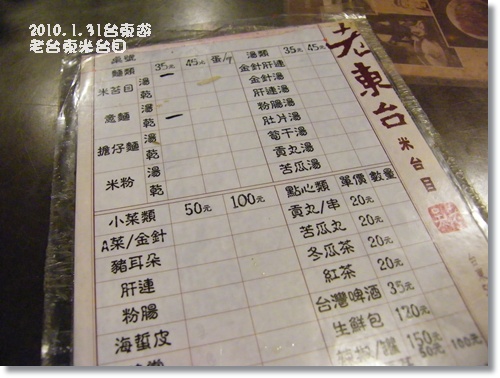 2010.1.31台東遊
老台東米台目
桌號
麵類 35元 45元 蛋/個 湯類 35元 45元
米苔目 湯 乾 金針肝連
金針湯
意麵 湯 乾 肝連湯
粉腸湯
擔仔麵 湯 乾 肚片湯
筍干湯
米粉 湯 乾 貢丸湯
苦瓜湯
小菜類 50元 100元 點心類 單價 數量
A菜/金針 貢丸/串 20元
豬耳朵 苦瓜丸 20元
肝連 冬瓜茶 20元
粉腸 紅茶 20元
海蜇皮 台灣啤酒 35元
生鮮包 120元
150元
50元 100元
老東台
米台目